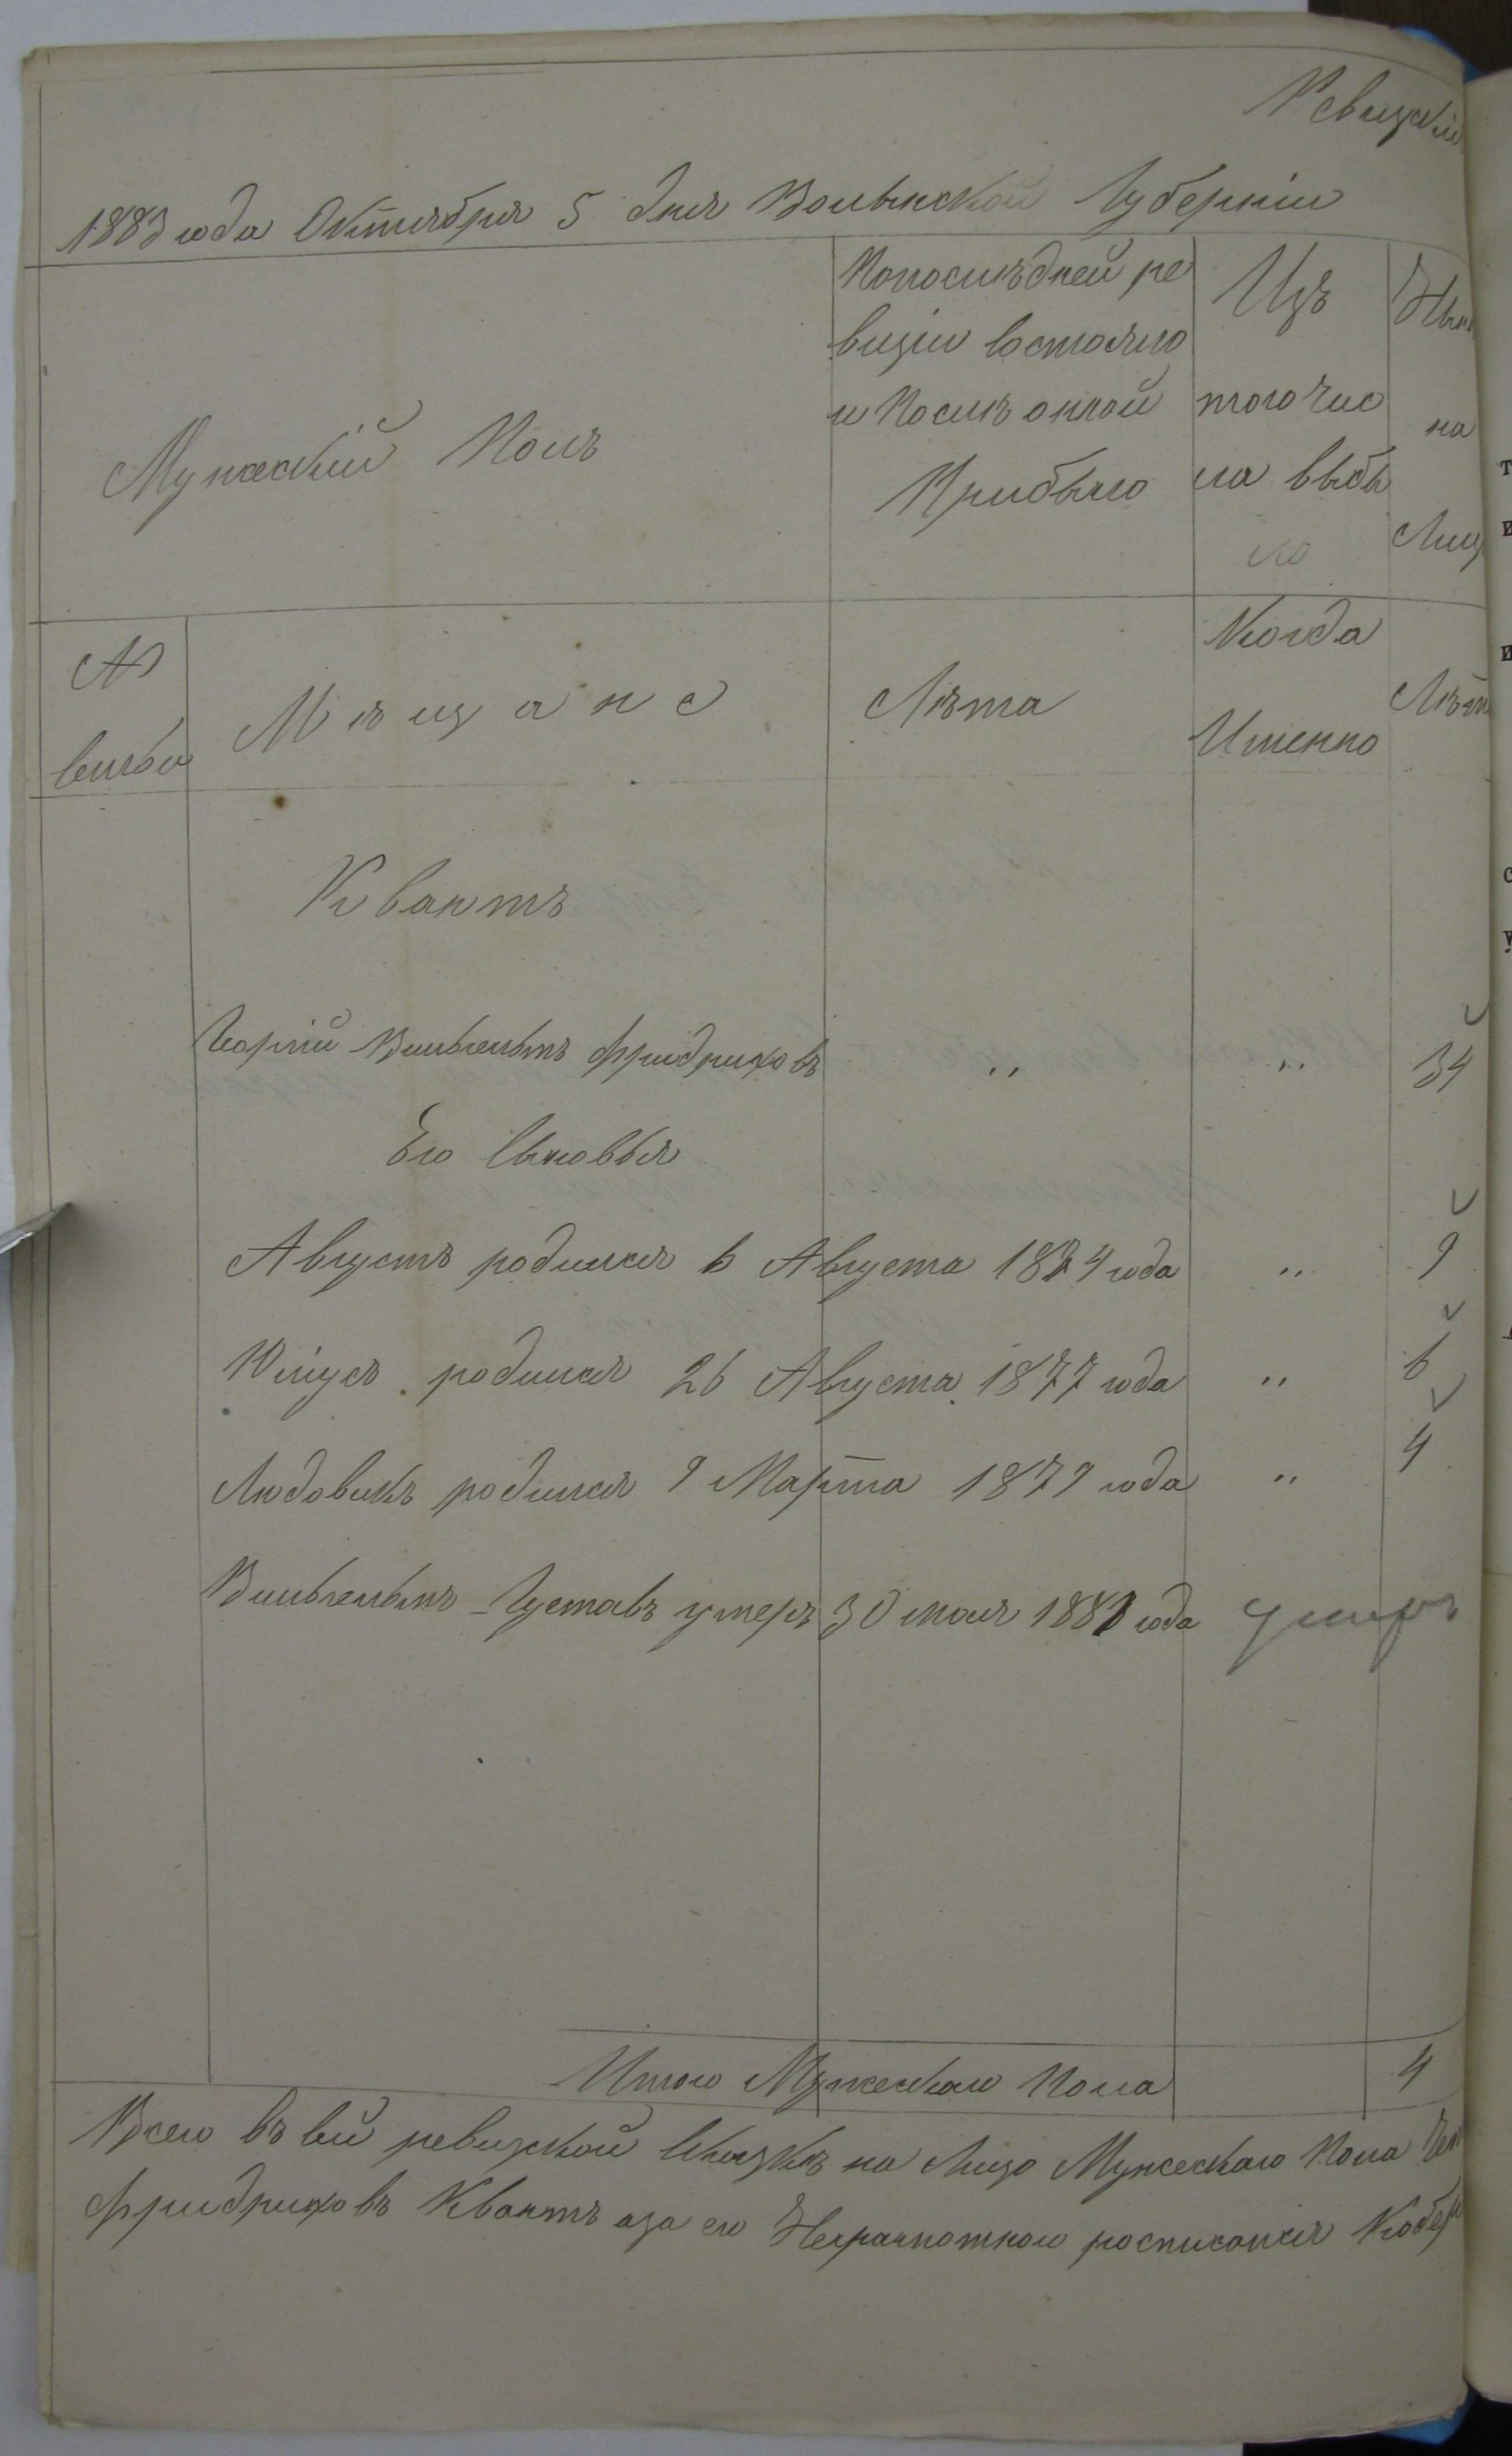 Ревизкій
1883 года Октября 5 дня Волынской Губерніи
Мужескій Полъ
Попослѣдней ре
визіи состояло
и Послѣ оной
Прибыло
Изъ
того чис
ла выбы
ло
Нын
на
Лиц
№
семьи
Мѣщане
Лѣта
Когда
Именно
Лѣт
Квантъ
Георгій Вильгельмъ Фридриховъ " " 34
Его Сыновья
Августъ родился 6 Августа 1874 года " 9
Юліусъ родился 26 Августа 1877 года " 6
Людовикъ родился 9 Марта 1879 года " 4
Вильгельмъ-Густавъ умеръ 30 мая 1883 года умеръ
Итого Мужескаго Пола 4
Всего въ сей ревизской Сказкѣ на Лицо Мужескаго Пола
Фридриховъ Квантъ аза его Неграмотного росписался